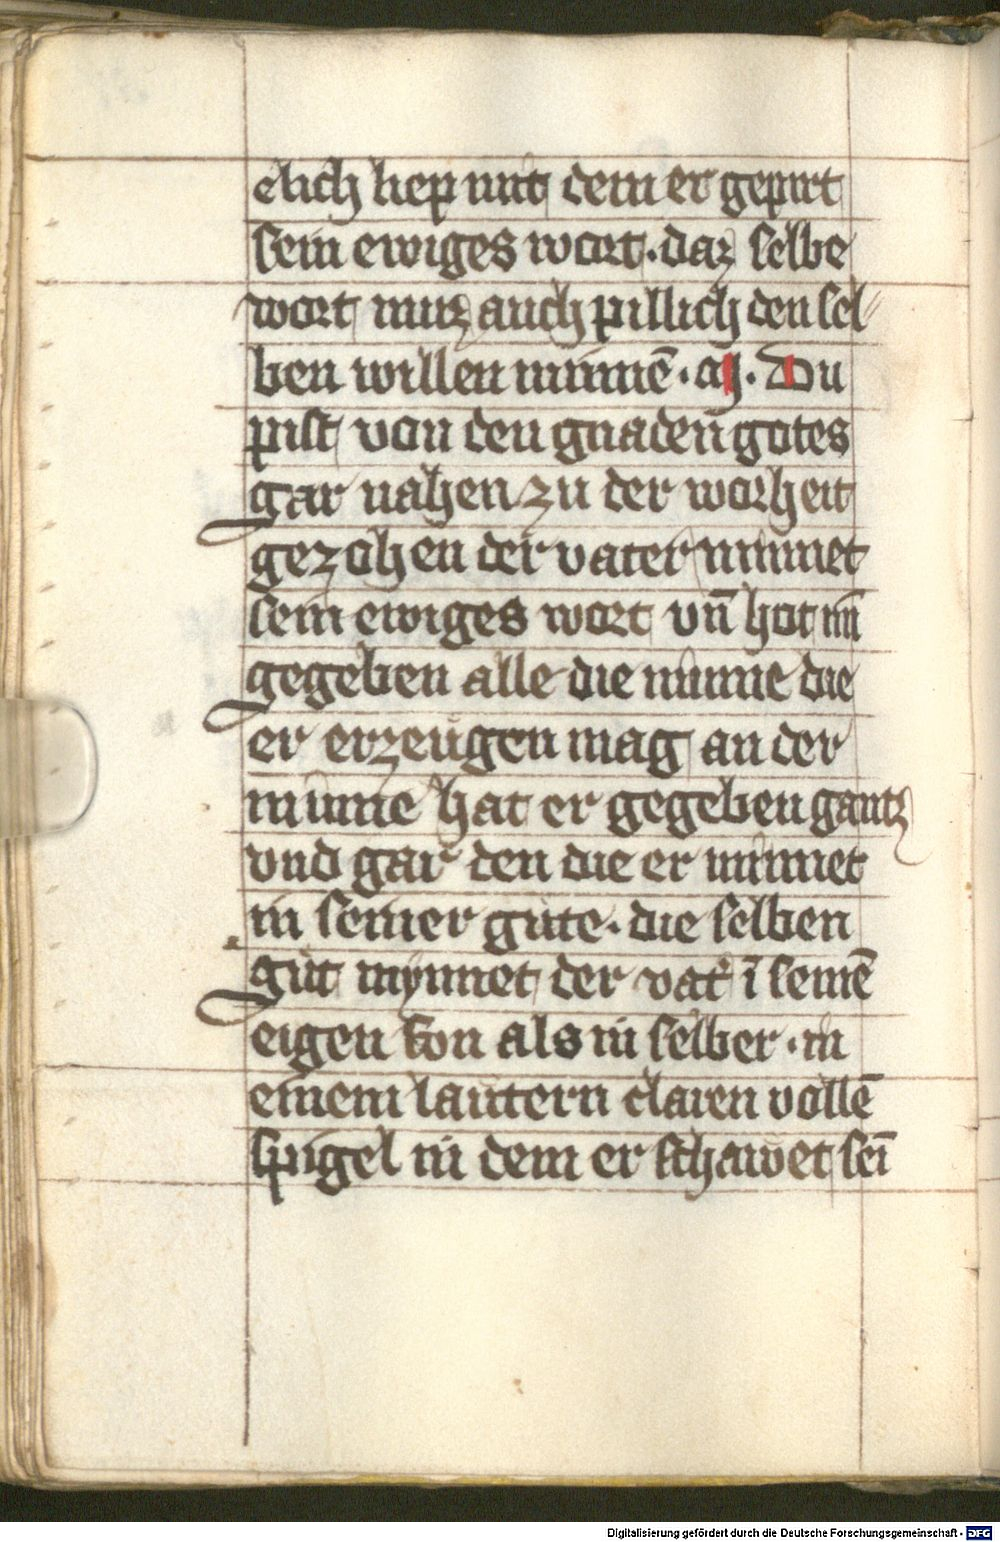 elich liep mit dem er gepirt
sein ewiges wort · daz selbe
wort muz auch pillich den sel〃
ben willen minnē · aj · Du
pist von den gnaden gotes
gar nahen zu der worheit
gezohen der vater minnet
sein ewiges wort vn̄ hot im̄
gegeben alle die minne die
er erzeugen mag an der
minne hat er gegeben gantz
vnd gar den die er minnet
in seiner güte · die selben
güt mynnet der vat̄ ī seinē
eigen son als in selber · in
einem lautern claren vollē
spigel in dem er schawet seī
Digitalisierung gefördert durch die Deutsche Forschungsgemeinschaft - DFG